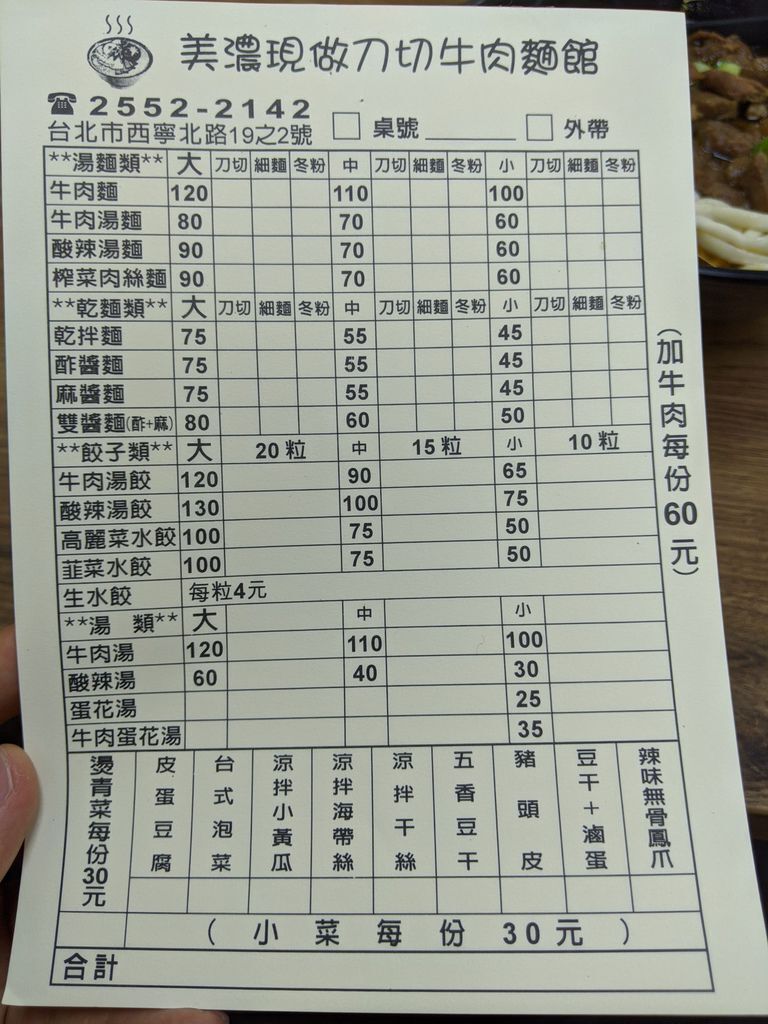 美濃現做刀切牛肉麵館
☎2552-2142
台北市西寧北路19之2號 □ 桌號______ □ 外帶
**湯麵類** 大 刀切 細麵 冬粉 中 刀切 細麵 冬粉 小 刀切 細麵 冬粉
牛肉麵 120 110 100
牛肉湯麵 80 70 60
酸辣湯麵 90 70 60
榨菜肉絲麵 90 70 60
**乾麵類** 大 刀切 細麵 冬粉 中 刀切 細麵 冬粉 小 刀切 細麵 冬粉
乾拌麵 75 55 45
酢醬麵 75 55 45
麻醬麵 75 55 45
雙醬麵(酢+麻) 80 60 50
**餃子類** 大 20粒 中 15粒 小 10粒
牛肉湯餃 120 90 65
酸辣湯餃 130 100 75
高麗菜水餃 100 75 50
韮菜水餃 100 75 50
生水餃 每粒4元
**湯 類** 大 中 小
牛肉湯 120 110 100
酸辣湯 60 40 30
蛋花湯 25
牛肉蛋花湯 35
(加牛肉每份60元)
燙青菜每份30元
皮蛋豆腐
台式泡菜
涼拌小黃瓜
涼拌海帶絲
涼拌干絲
五香豆干
豬頭皮
豆干+滷蛋
辣味無骨鳳爪
(小菜每份30元)
合計